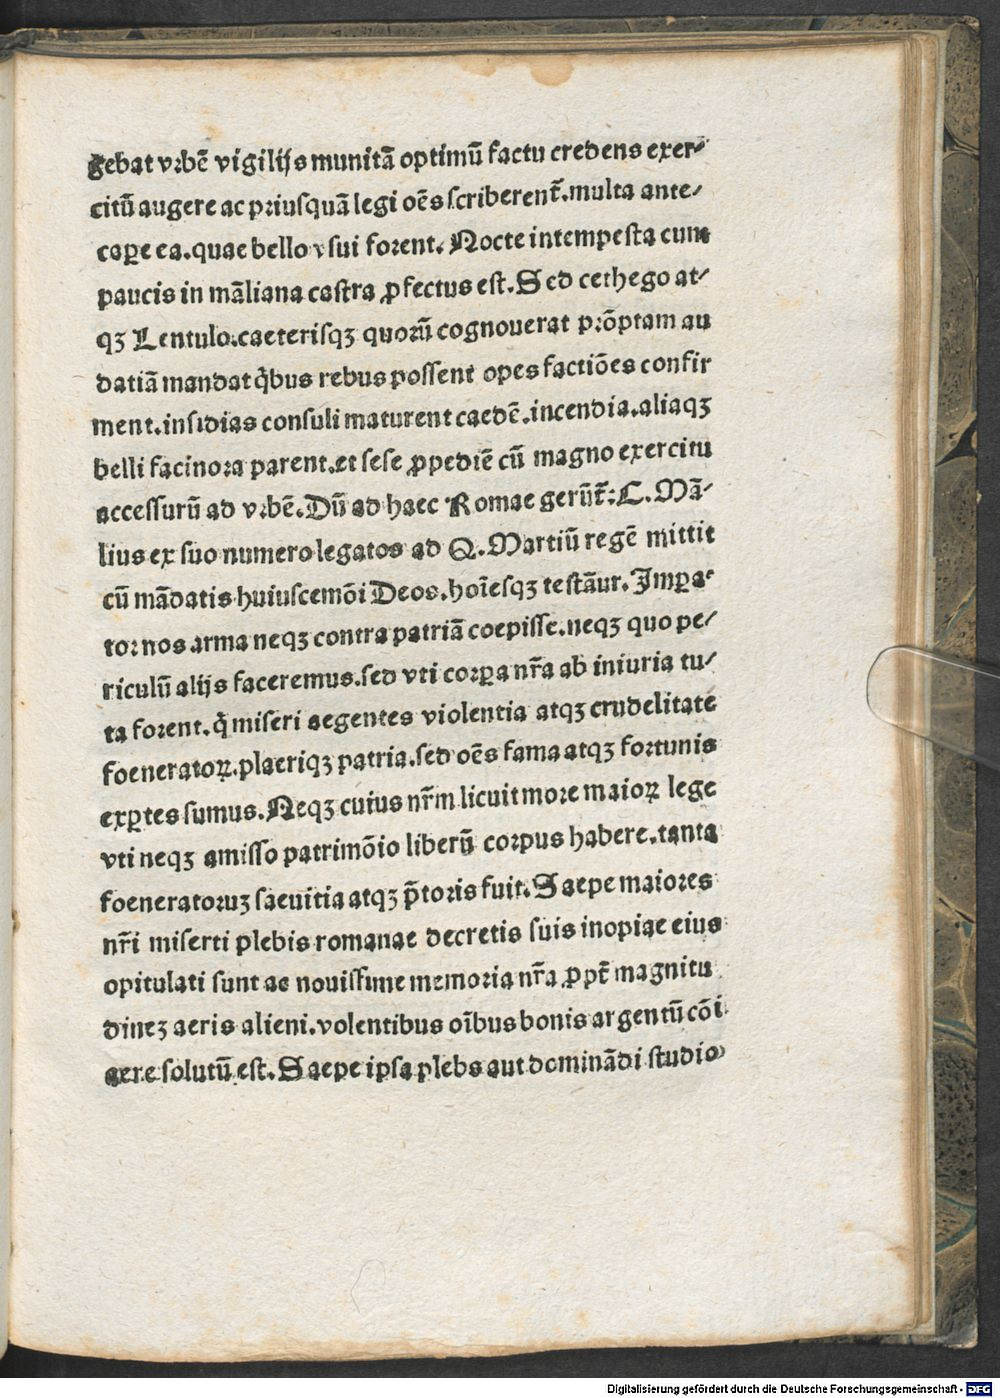 gebat vrbē vigilijs munitā optimū factu credens exer⸗
citū augere ac priusquā legi oēs scriberent̄. multa ante⸗
caꝑe ea. quae bello vsui forent. Nocte intempesta cum
paucis in māliana castra ꝓfectus est. Sed cethego at⸗
qꝫ Lentulo. caeterisqꝫ quorū cognouerat prōptam au
datiā mandat q̇bus rebus possent opes factiōes confir
ment. insidias consuli maturent caedē. incendia. aliaqꝫ
belli facinora parent. et sese ꝓpediē cū magno exercitu
accessurū ad vrbē. Dū ad haec Romae gerūt̄: C. Mā⸗
lius ex suo numero legatos ad Q. Martiū regē mittit
cū mādatis huiuscemōi Deos. hoīesqꝫ testāur. Imꝑa⸗
tor nos arma neqꝫ contra patriā coepisse. neqꝫ quo pe⸗
riculū alijs faceremus. sed vti corꝑa nr̄a ab iniuria tu⸗
ta forent. q̇ miseri aegentes violentia atqꝫ crudelitate
foeneratoꝝ. plaeriqꝫ patria. sed oēs fama atqꝫ fortunis
exꝑtes sumus. Neqꝫ cuius nr̄m licuit more maioꝝ lege
vti neqꝫ amisso patrimōio liberū corpus habere. tanta
foeneratoruꝫ saeuitia atqꝫ p̄toris fuit. Saepe maiores
nr̄i miserti plebis romanae decretis suis inopiae eius
opitulati sunt ac nouissime memoria nr̄a ꝓpt̄ magnitu
dineꝫ aeris alieni. volentibus oībus bonis argentū cōi
aere solutū est. Saepe ipsa plebs aut dominādi studio
Digitalisierung gefördert durch die Deutsche Forschungsgemeinschaft - DFG